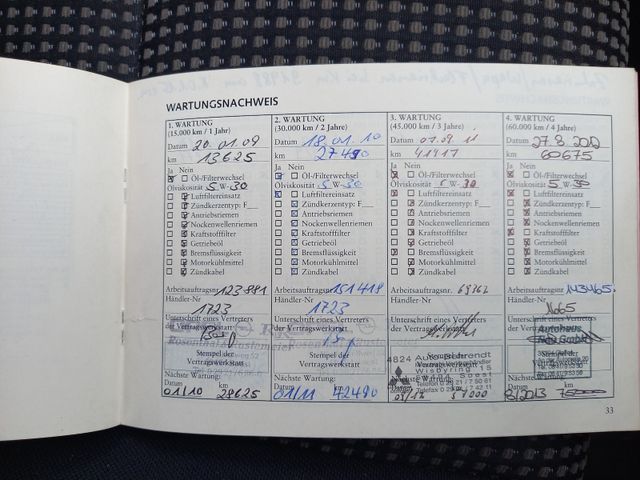 WARTUNGSNACHWEIS
1. WARTUNG
(15.000 km / 1 Jahr)
Datum 20.01.09
km 13625
Ja Nein
Öl-/Filterwechsel
Ölviskosität 5 W-30
Luftfiltereinsatz
Zündkerzentyp: F
Antriebsriemen
Nockenwellenriemen
Kraftstofffilter
Getriebeöl
Bremsflüssigkeit
Motorkühlmittel
Zündkabel
Arbeitsauftragsnr 123881
Händler-Nr
1723
Unterschrift eines Vertreters
der Vertragswerkstatt:
Stempel der
Vertragswerkstatt
Nächste Wartung:
Datum km
01/10 28625
2. WARTUNG
(30.000 km / 2 Jahre)
Datum 18.01.10
km 27490
Ja Nein
Öl-/Filterwechsel
Ölviskosität 5 W-30
Luftfiltereinsatz
Zündkerzentyp: F
Antriebsriemen
Nockenwellenriemen
Kraftstofffilter
Getriebeöl
Bremsflüssigkeit
Motorkühlmittel
Zündkabel
Arbeitsauftragsnr 151418
Händler-Nr
1723
Unterschrift eines Vertreters
der Vertragswerkstatt:
Stempel der
Vertragswerkstatt
Nächste Wartung:
Datum km
01/11 42490
3. WARTUNG
(45.000 km / 3 Jahre)
Datum 01.09.11
km 41417
Ja Nein
Öl-/Filterwechsel
Ölviskosität 5 W-30
Luftfiltereinsatz
Zündkerzentyp: F
Antriebsriemen
Nockenwellenriemen
Kraftstofffilter
Getriebeöl
Bremsflüssigkeit
Motorkühlmittel
Zündkabel
Arbeitsauftragsnr
Händler-Nr
Unterschrift eines Vertreters
der Vertragswerkstatt:
4824
Wisbyring 15
Soest
Nächste Wartung:
Datum km
4. WARTUNG
(60.000 km / 4 Jahre)
Datum 27.8.2012
km 60675
Ja Nein
Öl-/Filterwechsel
Ölviskosität 5 W-30
Luftfiltereinsatz
Zündkerzentyp: F
Antriebsriemen
Nockenwellenriemen
Kraftstofffilter
Getriebeöl
Bremsflüssigkeit
Motorkühlmittel
Zündkabel
Arbeitsauftragsnr 143465
Händler-Nr
Unterschrift eines Vertreters
der Vertragswerkstatt:
Autohaus
GmbH
Nächste Wartung:
Datum km
8/2013 75000
33